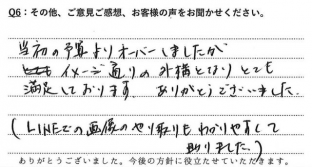 Q6：その他、ご意見ご感想、お客様の声をお聞かせください。
当初の予算よりオーバーしましたが
イメージ通りの外構となりとても
満足しております ありがとうございました。
(LINEでの画像のやり取りもわかりやすくて
助りました。)
ありがとうございました。今後の方針に役立たせていただきます。